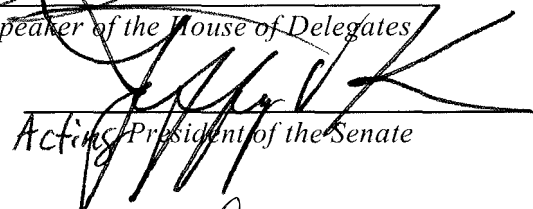 peaker of the House of Delegates
Acting President of the Senate